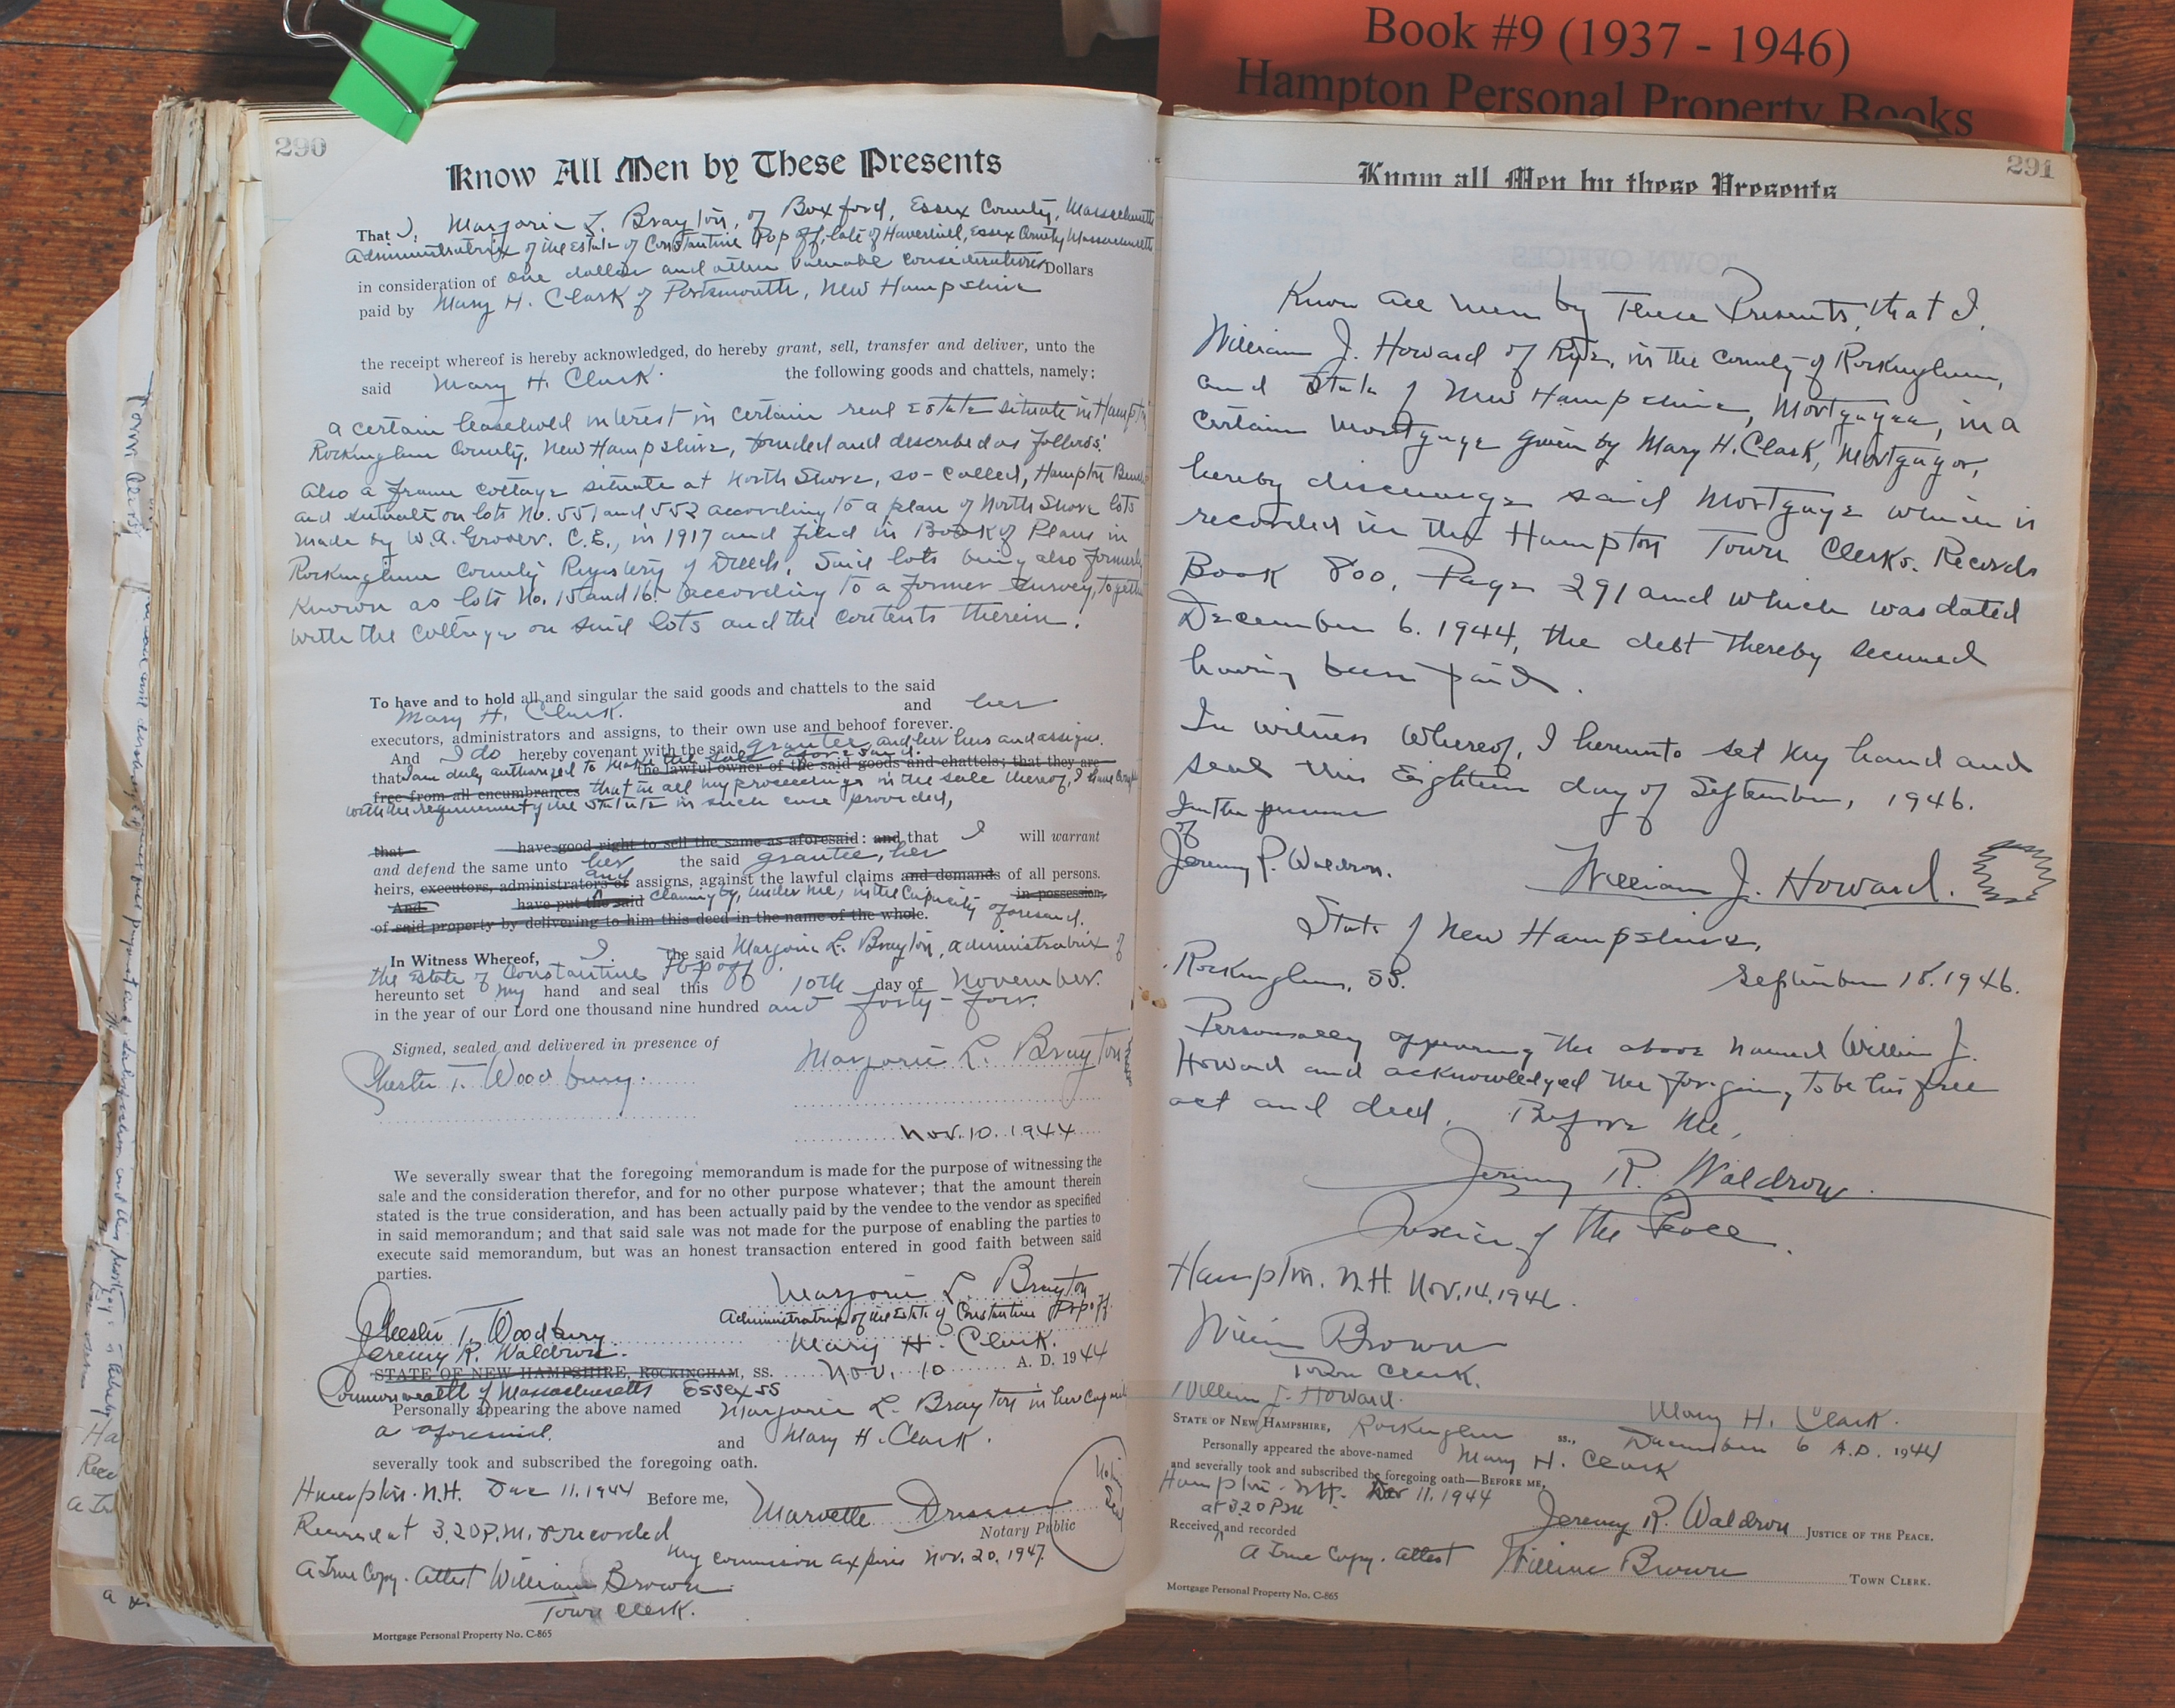 Book #9 (1937 - 1946)
Hampton Personal Property Books
290
Know All Men by These Presents
That I, Marjorie L. Brayton, of Boxford, Essex County, Massachusetts
Administratrix of the Estate of Constantine Popoff, late of Haverhill, Essex County Massachusetts
in consideration of one dollar and other valuable considerations Dollars
paid by Mary H. Clark of Portsmouth, New Hampshire
the receipt whereof is hereby acknowledged, do hereby grant, sell, transfer and deliver, unto the
said Mary H. Clark the following goods and chattels, namely;
a certain leasehold interest in certain real estate situate in Hampton
Rockingham County, New Hampshire, bounded and described as follows:
Also a frame cottage situate at North Shore, so-called, Hampton Beach
and situate on lots No. 551 and 552 according to a plan of North Shore lots
made by W.A. Grover. C.E., in 1917 and filed in Book of Plans in
Rockingham County Registery of Deeds, Said lots being also formerly
known as lots No. 15 and 16. according to a former survey, together
with the cottage on said lots and the contents therein.
To have and to hold all and singular the said goods and chattels to the said
Mary H. Clark. and her
executors, administrators and assigns, to their own use and behoof forever.
And I do hereby covenant with the said grantee, and her heirs and assigns.
that I am duly authorized to make the sale aforesaid. the lawful owner of the said goods and chattels; that they are
free from all encumbrances that in all my proceedings in the sale thereof, I have
with the requirements of the Statute in such case provided,
that have good right to sell the same as aforesaid: and that I will warrant
and defend the same unto her the said grantee, her
heirs, executors, administrators or and assigns, against the lawful claims and demands of all persons.
And have put the said claiming by, under me, in the Capacity aforesaid. in possession
of said property by delivering to him this deed in the name of the whole.
In Witness Whereof, I. the said Marjorie L. Brayton, administratrix of
the Estate of Constantine Popoff.
hereunto set my hand and seal this 10th day of November.
in the year of our Lord one thousand nine hundred and forty-four.
Signed, sealed and delivered in presence of
Chester T. Woodbury. Marjorie L. Brayton
Nov. 10. 1944
We severally swear that the foregoing memorandum is made for the purpose of witnessing the
sale and the consideration therefor, and for no other purpose whatever; that the amount therein
stated is the true consideration, and has been actually paid by the vendee to the vendor as specified
in said memorandum; and that said sale was not made for the purpose of enabling the parties to
execute said memorandum, but was an honest transaction entered in good faith between said
parties.
Marjorie L. Brayton
Administratrix of the Estate of Constantine Popoff.
Chester T. Woodbury
Jeremy R. Waldron. Mary H. Clark.
STATE OF NEW HAMPSHIRE, ROCKINGHAM, SS. Nov. 10 A. D. 1944
Commonwealth of Massachusetts Essex ss
Personally appearing the above named Marjorie L. Brayton in her capacity
a aforesaid. and Mary H. Clark.
severally took and subscribed the foregoing oath.
Hampton. N.H. Dec 11. 1944 Before me,
Received at 3.20 P.M. & recorded Notary Public
My commission expires Nov. 20. 1947.
A True Copy. Attest William Brown
Town Clerk.
Mortgage Personal Property No. C-865
291
Know all Men by these Presents
Know all men by These Presents, that I,
William J. Howard of Rye, in the County of Rockingham,
and State of New Hampshire, Mortgagee, in a
certain mortgage given by Mary H. Clark, Mortgagor,
hereby discharge said mortgage which is
recorded in the Hampton Town Clerks. Records
Book 800, Page 291 and which was dated
December 6. 1944, the debt thereby secured
having been paid.
In witness whereof, I hereunto set my hand and
seal this Eighteen day of September, 1946.
In the presence
of
Jeremy R. Waldron.
William J. Howard.
State of New Hampshire,
Rockingham, SS. September 18. 1946.
Personally appearing the above named William J.
Howard and acknowledged the forgoing to be his free
act and deed, Before Me,
Jeremy R. Waldron
Justice of the Peace.
Hampton. N.H. Nov. 14. 1946.
William Brown
Town Clerk.
William J. Howard. Mary H. Clark.
STATE OF NEW HAMPSHIRE, Rockingham ss., December 6 A.D. 1944
Personally appeared the above-named Mary H. Clark
and severally took and subscribed the foregoing oath—BEFORE ME,
Hampton. N.H. Dec 11. 1944
at 3.20 PM
Received and recorded Jeremy R. Waldron JUSTICE OF THE PEACE.
A True Copy. Attest William Brown TOWN CLERK.
Mortgage Personal Property No. C-865